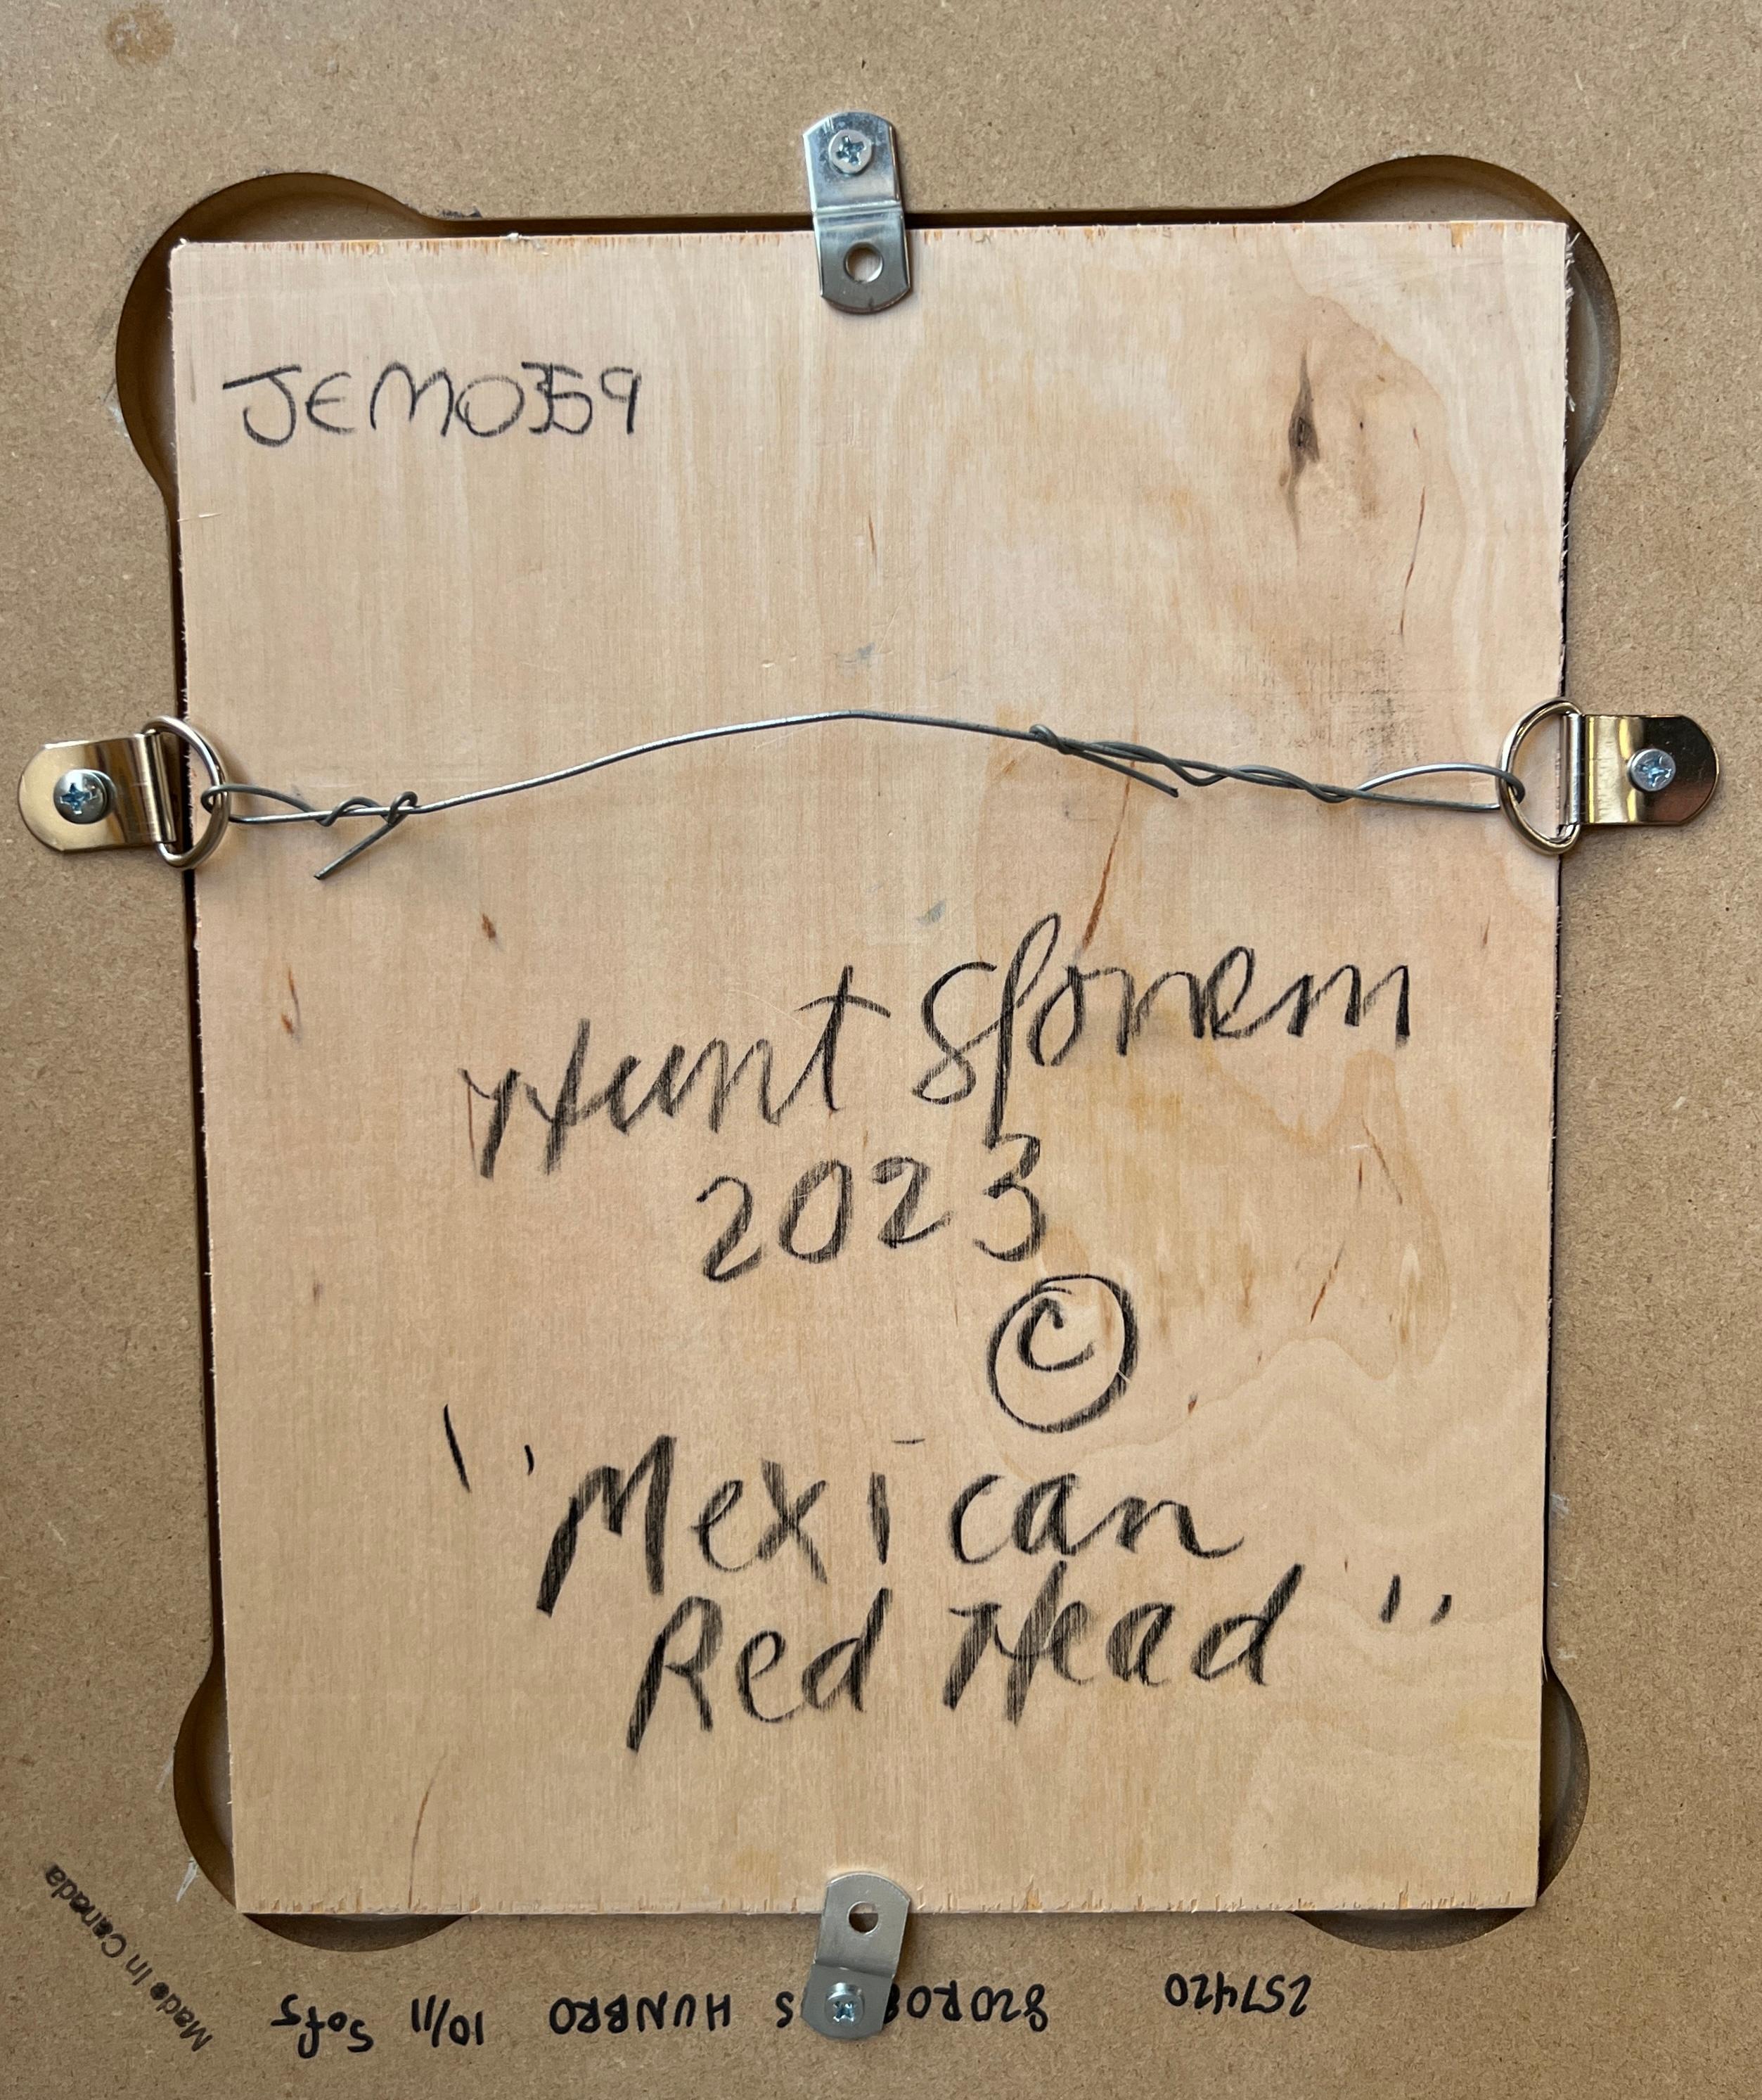 JEM0359
Hunt Slonem
2023
©
"Mexican
Red Head"
Made In Canada
257420 HUNBRO 10/11 5of5